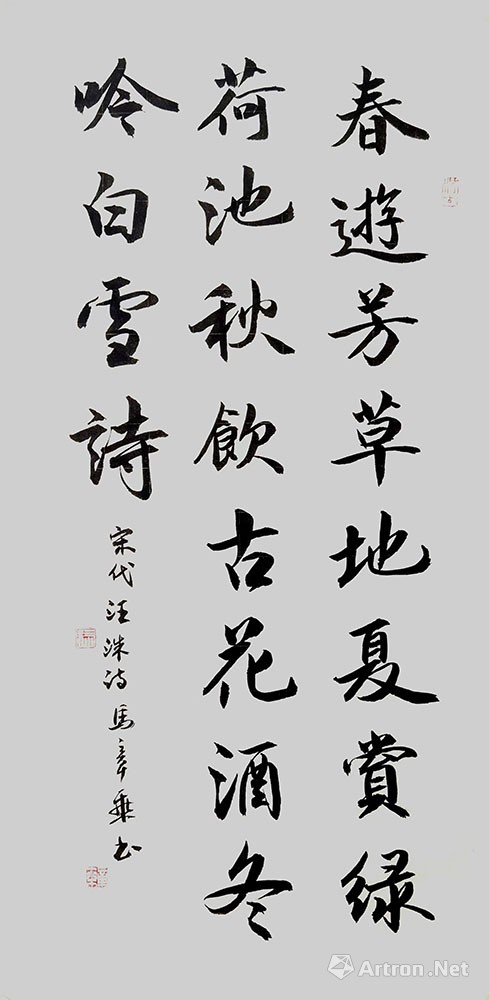 春遊芳草地夏賞緑
荷池秋飲古花酒冬
吟白雪詩
宋代汪洙诗馬章乗书
Artron.Net